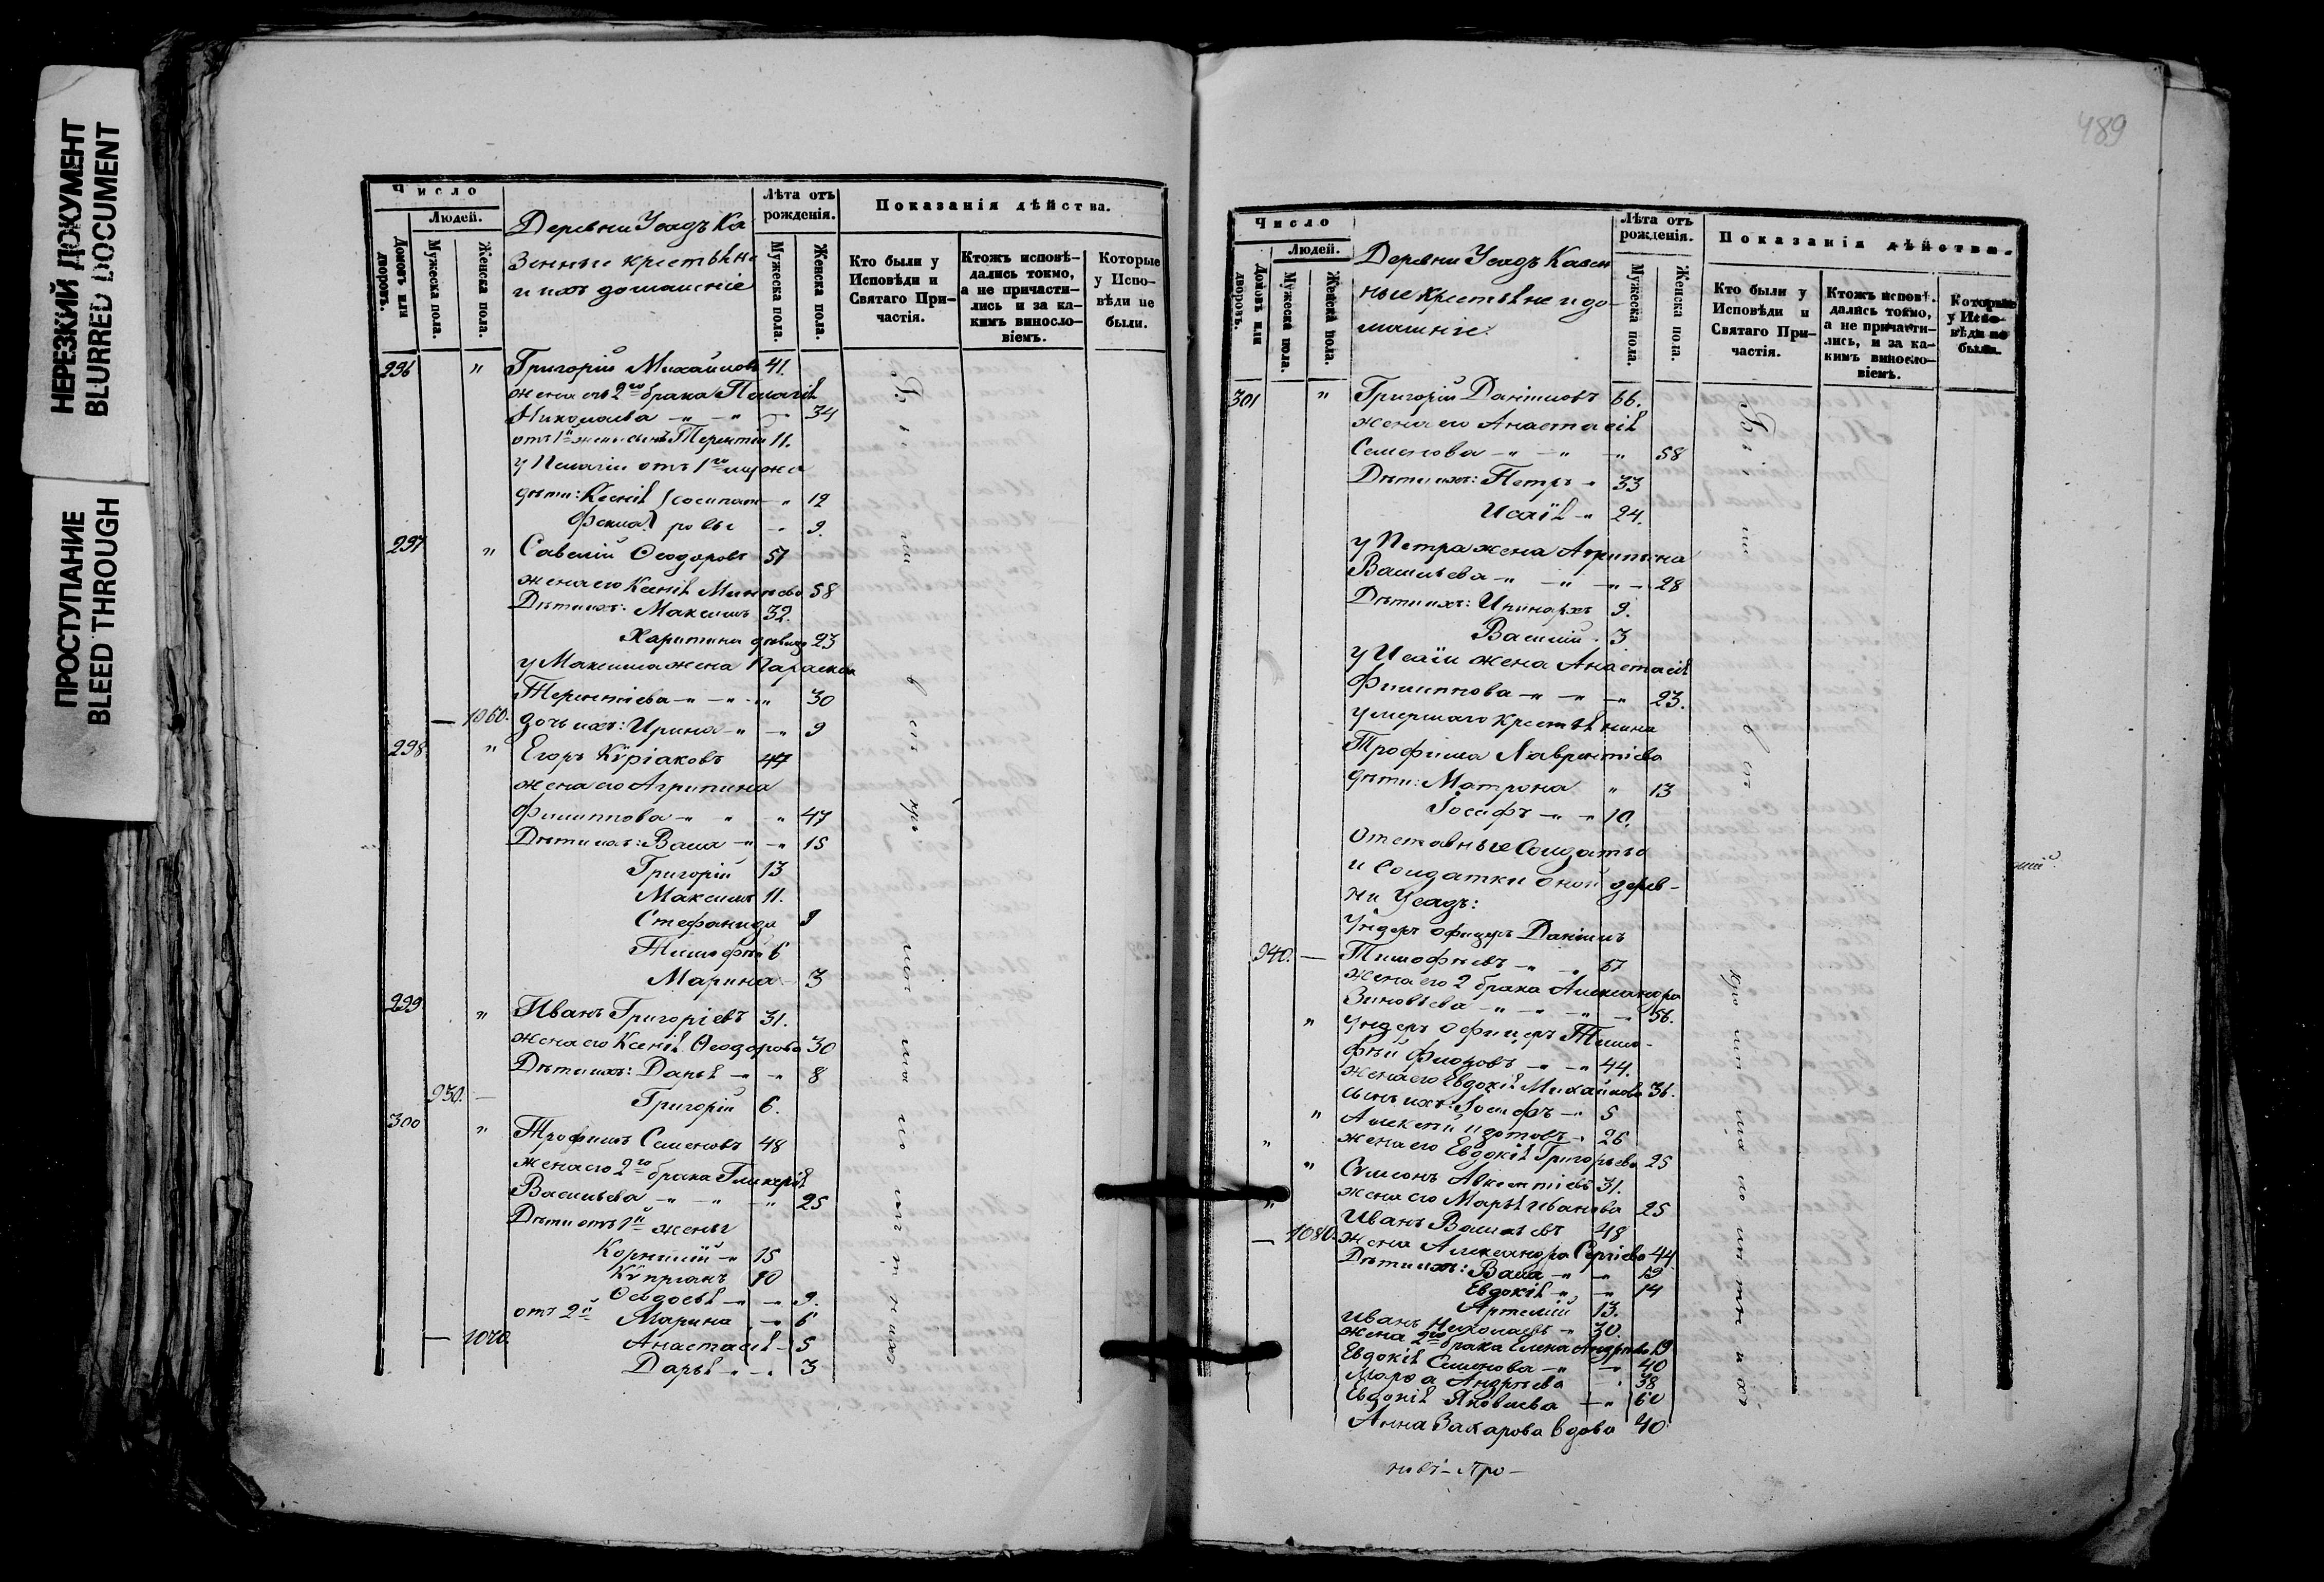 НЕРЕЗКИЙ ДОКУМЕНТ
BLURRED DOCUMENT
ПРОСТУПАНИЕ
BLEED THROUGH
Число
Людей.
Домовъ или дворовъ.
Мужеска пола.
Женска пола.
Деревни Усадъ Ка
зенные крестьяне
и ихъ домашніе
Лѣта отъ рожденія.
Мужеска пола.
Женска пола.
Показанія дѣйства.
Кто были у Исповѣди и Святаго При-частія.
Ктожъ исповѣ-дались токмо, а не причасти-лись и за ка-кимъ винosло-віемъ.
Которые у Испо-вѣди не были.
296 " Григорій Михайловъ 41.
жена его 2го брака Пелагія
Николаева - " - " - 34
отъ 1й жены сынъ Терентій 11.
у Пелагіи отъ 1го мужа
дѣти: Ксенія Сосипат- " 12
Фекла ровы - " 9.
297 " Савелій Ѳеодоровъ 57
жена его Ксенія 58
Дѣти ихъ: Максимъ 32.
Харитина дѣвица 23
у Максима жена Параскева
Терентіева - " - " - " 30
— 1060. дочь ихъ: Ирина - " - " 9
298 " Егоръ Кѵріаковъ 47
жена его Агрипина
Филиппова - " " " 47
Дѣти ихъ: Васса - " - " 15
Григорій 13
Максимъ 11.
Стефанида 9
Тимофей 6
Марина - 3
299 " Иванъ Григоріевъ 31.
жена его Ксенія Ѳеодорова 30
Дѣти ихъ: Дарья - " - " 8
930. — Григорій 6.
300 " Трофимъ Семеновъ 48
жена его 2го брака Гликерія
Васильева - " - " - " 25
Дѣти отъ 1й жены
Корнилій - " 15
Кѵпріанъ 10
Ѳеодосія - " - " 9.
отъ 2й Марина - " 6
— 1070. Анастасія - 5
Дарья - " - " 3
489
Число
Людей.
Домовъ или дворовъ.
Мужеска пола.
Женска пола.
Деревни Усадъ Казен
ные крестьяне и до
машніе.
Лѣта отъ рожденія.
Мужеска пола.
Женска пола.
Показанія дѣйства.
Кто были у Исповѣди и Святаго При-частія.
Ктожъ исповѣ-дались токмо, а не причасти-лись, и за ка-кимъ винosло-віемъ.
Которые у Испо-вѣди не были.
301 " Григорій Даніиловъ 66.
жена его Анастасія
Семенова - " - " - " 58
Дѣти ихъ: Петръ - " 33
Исаія - " 24.
у Петра жена Агрипина
Васильева - " - " - " - 28
Дѣти ихъ: Иринархъ 9.
Василій . 3
у Исаіи жена Анастасія
Филиппова - " - " - " 23.
умершаго крестьянина
Трофима Лаврентіева
дѣти: Матрона " 13
Іосифъ - " - " 10.
Отставные Солдаты
и Солдатки оной дерев-
ни Усадъ:
Ундеръ офицеръ Даніилъ
940. — Тимофеевъ - " - " 57
жена его 2 брака Александра
Зиновьева - " - " - " - 56.
" Ундеръ офицеръ Тимо-
фѣй - " - " 44.
жена его Евдокія Михайлова 36.
сынъ ихъ: Іосифъ - " 5
" Алексѣй Изотовъ - " 26
" жена его Евдокія Григорьева 25
" Сѵмеонъ Авксентіевъ 31.
" жена его Марья Иванова 25
Иванъ Васильевъ 48
— 1080. жена Александра Сергіева 44
Дѣти ихъ: Васса - " - " 19
Евдокія - " - " 14
Артемій 13.
Иванъ Николаевъ - " 30.
жена 2го брака Елена Андреева 19
Евдокія Семенова - " - " 40
Марѳа Андреева " 38
Евдокія Яковлева - " 60
Анна Захарова вдова 40